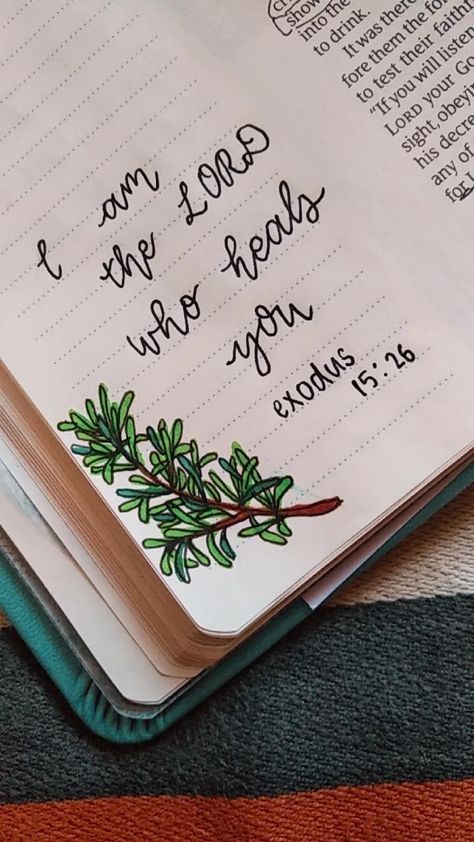 I am
the LORD
who heals
you
exodus
15:26
show
into the
to drink.
It was there
fore them the fo
to test their faith
"If you will listen
LORD your Go
sight, obeyin
his decre
any of
for I